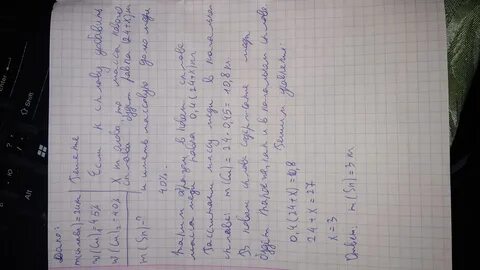 Дано:
m(сплава)=24кг
w(Cu)₁=45%
w(Cu)₂=40%
m(Sn)-?
Решение
Если к сплаву добавить
X кг олова, то масса нового
сплава будет равна (24+X)кг
и иметь массовую долю меди
40%.
Таким образом в новом сплаве
масса меди равна 0,4(24+x)кг.
Рассчитаем массу меди в начальном
сплаве: m(Cu)=24·0,45=10,8кг
В новом сплаве содержание меди
будет таким же, как и в начальном сплаве.
Решим уравнение:
0,4(24+x)=10,8
24+x=27
x=3
Ответ: m(Sn)=3кг
Shift
Ctrl
Fn